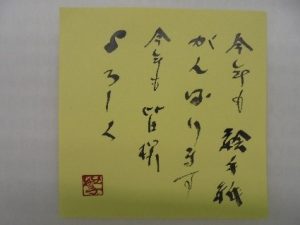 今年も 絵手紙
がんばります
今年も 皆様
よろしく